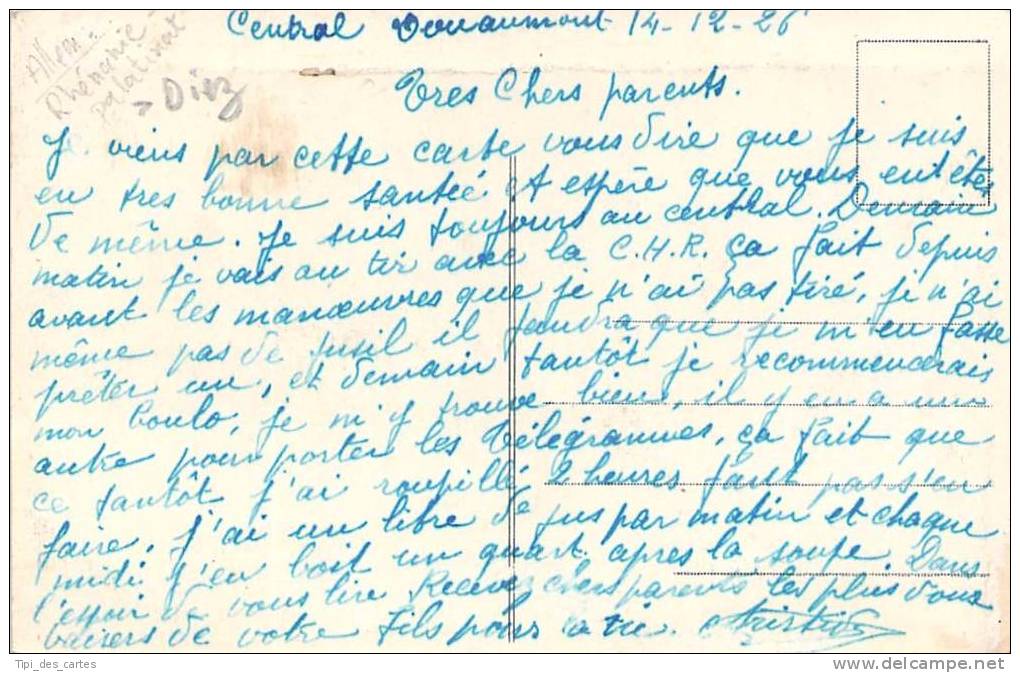 Central Douaumont 14-12-26
Allem:
Rhénanie
palatinat
→ Diez
Tres Chers parents.
Je viens par cette carte vous dire que je suis
en tres bonne santée et espère que vous ent êtes
de même. Je suis toujours au central. Demain
matin je vais au tir avec la C.H.R. ça fait depuis
avant les manœuvres que je n'ai pas tiré, je n'ai
même pas de fusil il faudra que je m'en fasse
prêter un, et demain tantôt je recommencerais
mon boulo, je m'y trouve bien, il y en a un
autre pour porter les télégrammes, ça fait que
ce tantôt j'ai roupillé 2 heures faut pas s'en
faire. j'ai un litre de jus par matin et chaque
midi j'en boit un quart apres la soupe. Dans
l'espoir de vous lire Recevez chers parents les plus doux
baisers de votre fils pour la vie.
Tipi_des_cartes
delcampe.net